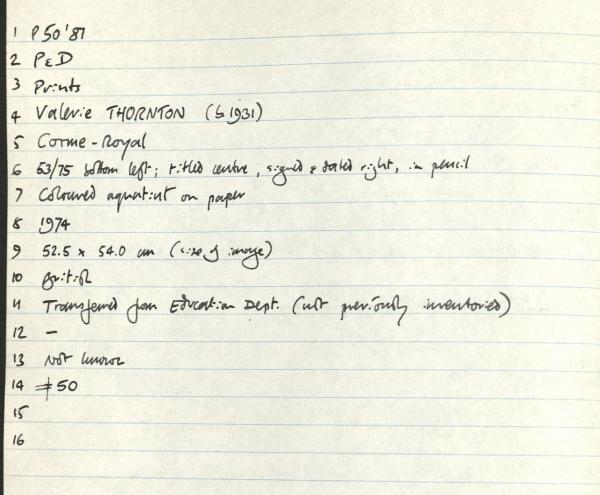 1 P50'87
2 P&D
3 Prints
4 Valerie THORNTON (b 1931)
5 Corme-Royal
6 53/75 bottom left; titled centre, signed & dated right, in pencil
7 Coloured aquatint on paper
8 1974
9 52.5 x 54.0 cm (size of image)
10 British
11 Transferred from Education Dept. (not previously inventoried)
12 –
13 Not known
14 50
15
16